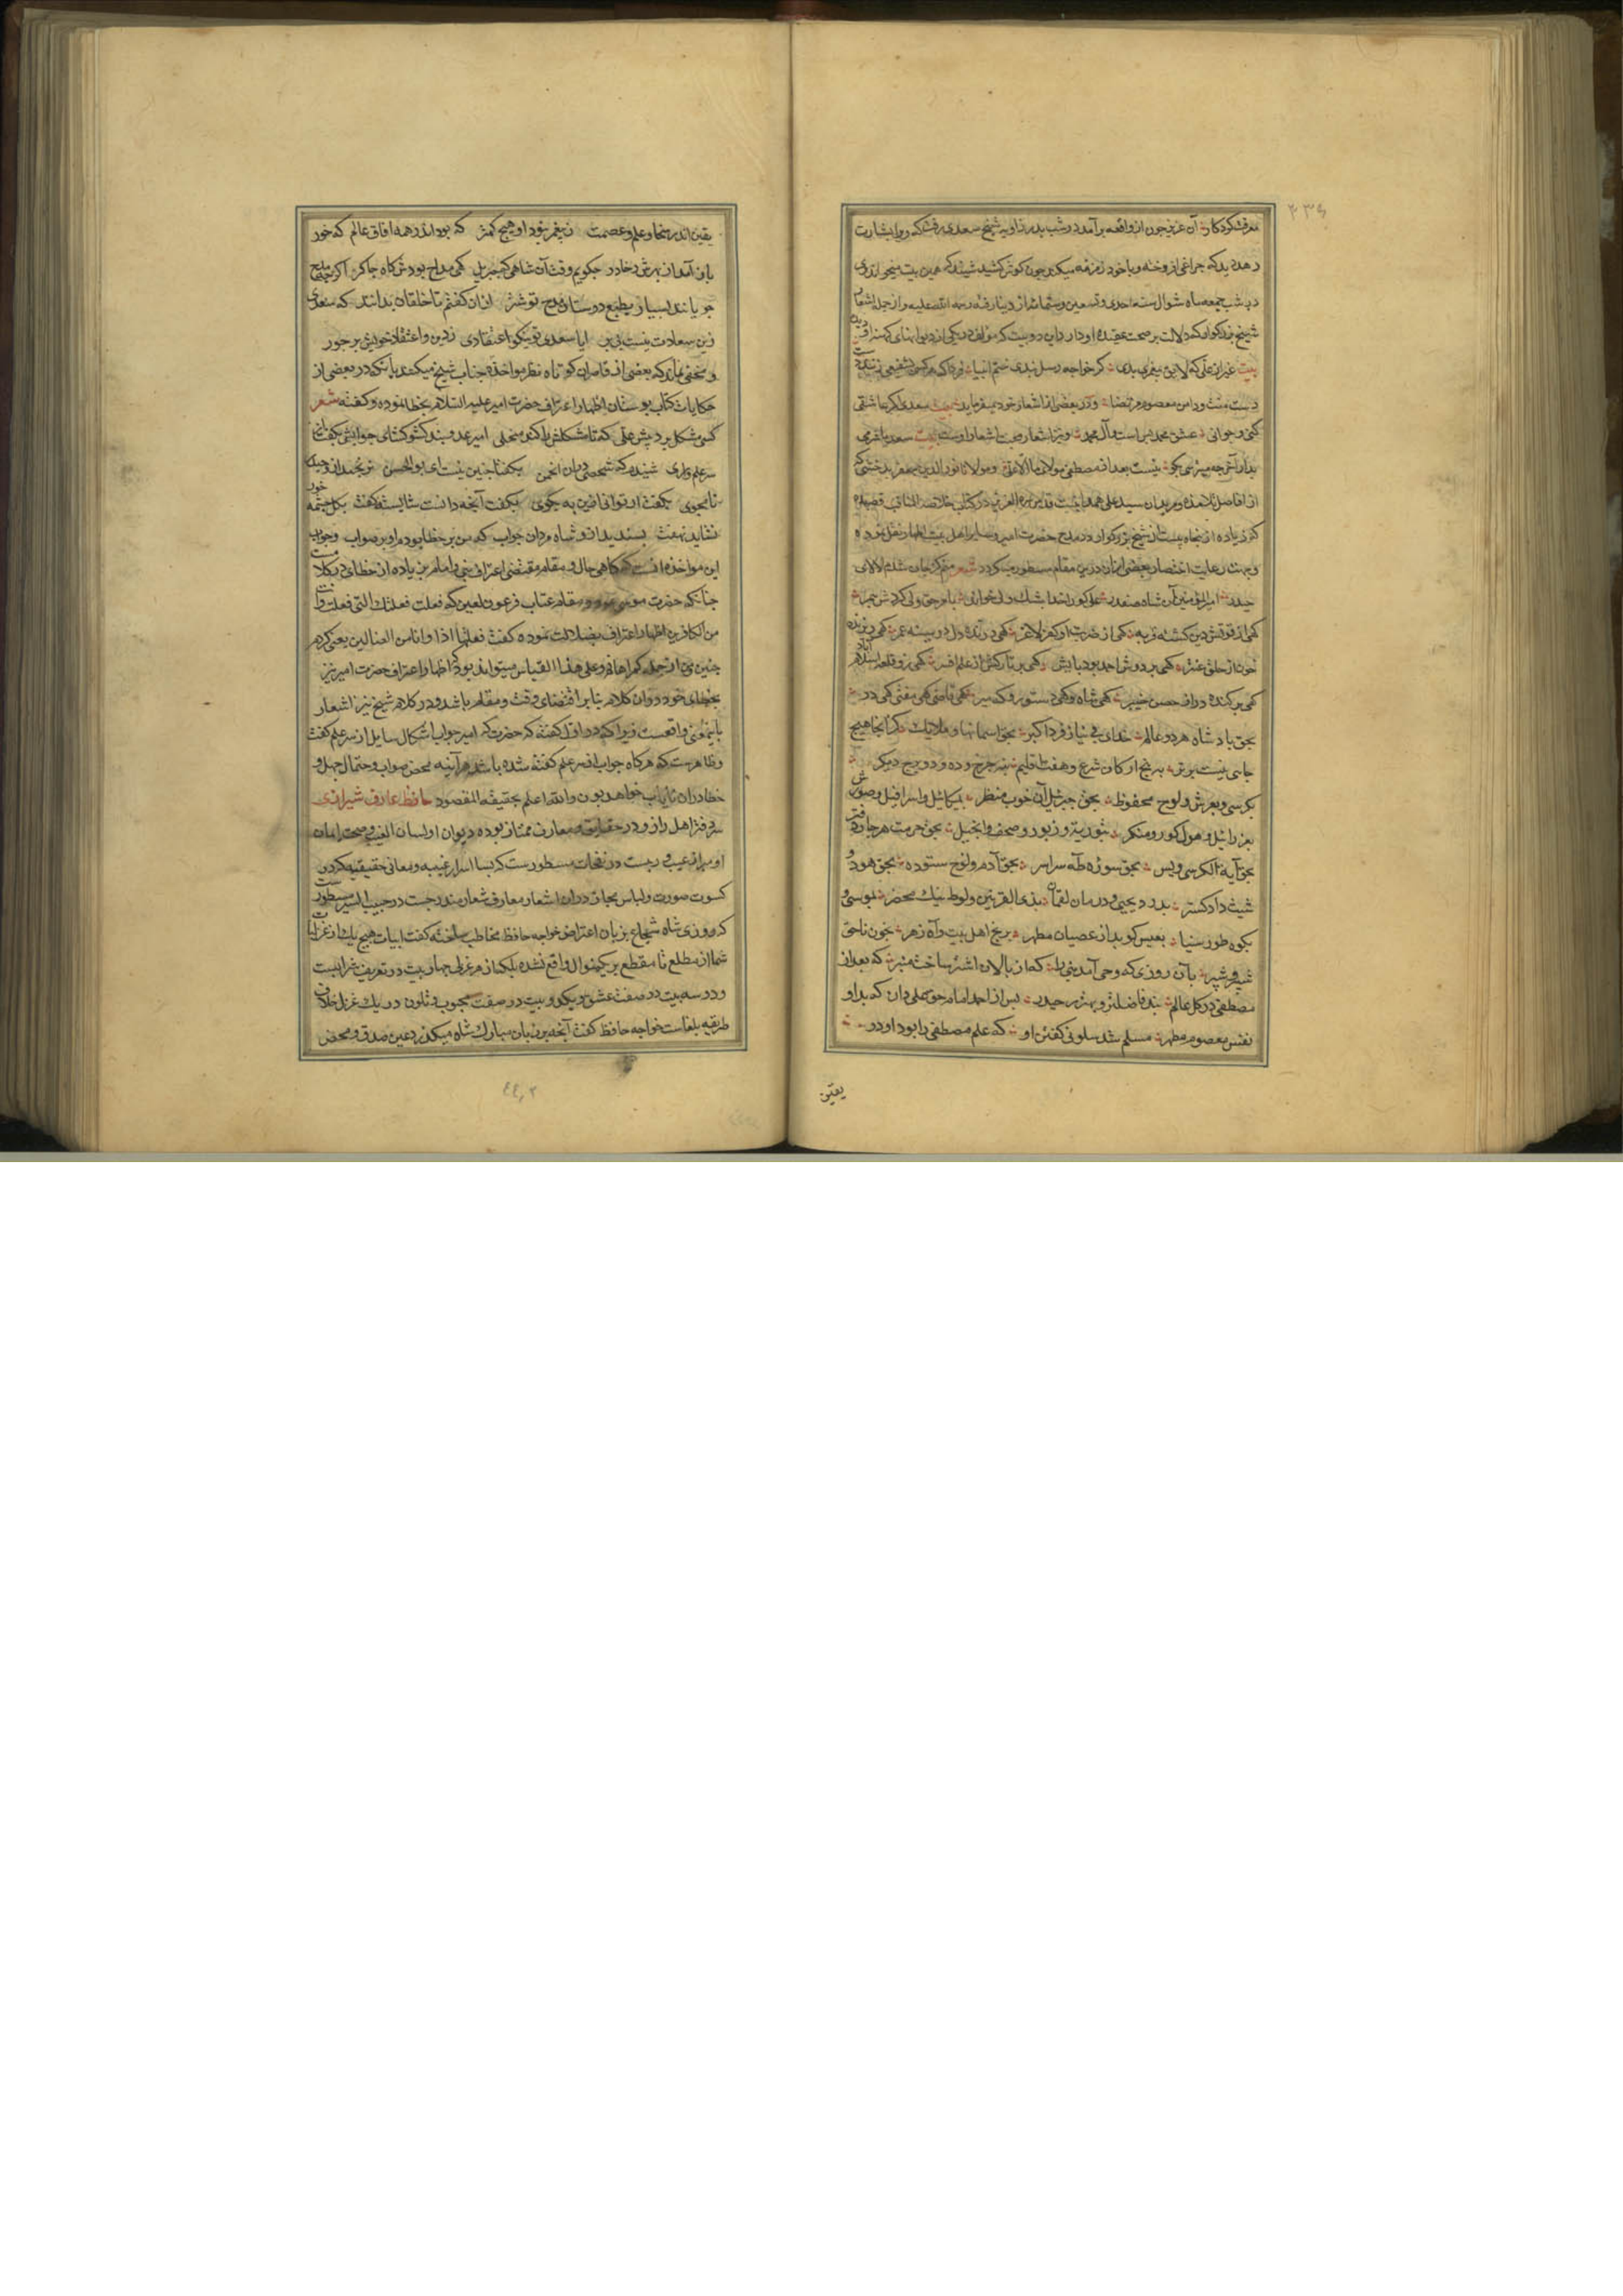 معرفت کردکار آن عزیز چون از واقعه برآمد در شب بدر زاویه شیخ سعدی رفت که روا بشارت
دهد دید که چراغی افروخته و با خود زمزمه میکند چون کوش کشید شنید که همین بیت میخواند وی
در شب جمعه ماه شوال سنه احدی و تسعین و ستمائه از دنیا رفته رحمه الله علیه و از جمله اشعار
شیخ بزرکوار که دلالت بر صحت عقیده او دارد این دو بیت که مؤلف در یکی از دیوانهای کهنه او دیده
بیت غیر از علی که لایق پیغمبری بدی کر خواجه رسل نبدی ختم انبیا فردا که هر کسی بشفیعی زنند دست
دست منست و دامن معصوم مرتضا و در بعضی از اشعار خود میفرماید بیت سعدی اکر عاشقی
کنی و جوانی عشق محمد بس است و آل محمد و نیز اشعار
بعد از مصطفی و مولانا نورالدین جعفر بدخشی که
از افاضل تلامذه و مریدان سید علی همدانیست قدس سره العزیز در کتاب خلاصة المناقب قصیده
که زیاده از پنجاه بیتست از شیخ بزرکوار در مدح حضرت امیر و سایر اهل بیت اطهار نقل نموده
و بجهت رعایت اختصار بعضی از آن درین مقام مسطور میکردد شعر منم کز جان شدم لالای
حیدر امیرالمؤمنین آن شاه صفدر علی کو را خدا بیشک ولی خواند بامر حق ولی کردش پیمبر
خون از حلق عنتر کهی بر دوش احمد بود پایش کهی بر تارکش از علم افسر
کهی برکنده در از حصن خیبر کهی شاه و کهی دستور و که میر کهی قاضی کهی مفتی کهی در
بحق پادشاه هر دو عالم خدای بی نیاز فرد اکبر بحق آسمانها و ملایک کز آنجا هیچ
جایی نیست برتر به پنج ارکان شرع و هفت اقلیم بنه چرخ و ده و دو برج دیکر
بکرسی و بعرش و لوح محفوظ بحق جبرئیل آن خوب منظر بمیکائیل و اسرافیل و صورش
بعزرائیل و هول کور و منکر بتوریة و زبور و صحف و انجیل بحق حرمت هر چار دفتر
بحق آیة الکرسی و یس بحق سوره طه سراسر بحق آدم و نوح ستوده بحق هود و
شیث دادکستر بدرد یحیی و درمان لقمان بذی القرنین و لوط نیک محضر بموسی و
کوه طور سینا بعیسی کو بد از عصیان مطهر برنج اهل بیت و آه زهرا بخون ناحق
شبیر و شبر بآن روزی که وحی آمد نبی را که از پالان اشتر ساخت منبر که بعد از
مصطفی در کل عالم نبد فاضلتر و بهتر ز حیدر پس از احمد امام حق علی دان که بد او
نفس معصوم مطهر مسلم شد سلونی کفتن او که علم مصطفی را بود او در
یقین
یقین اندر سخا و علم و عصمت ز پیغمبر نبود او هیچ کمتر که بود اندر همه افاق عالم که خور
باز آمد از بهرش ز خاور چکویم وصف آن شاهی که جبریل کهی مداح بودش کاه چاکر اکر چه
جویانند بسیار بطبع دوستان مدح تو خوشتر از آن کفتم تا خلقان بدانند که سعدی
زین سعادت نیست بی بر ایا سعدی تو نیکو اعتقادی ز دین و اعتقاد خویش برخور
و مخفی نماند که بعضی از قاصران کوتاه نظر مؤاخذه جناب شیخ میکنند بآنکه در بعضی از
حکایات کتاب بوستان اظهار اعتراف حضرت امیر علیه السلام بخطا نموده و کفته شعر
کسی مشکلی برد پیش علی که تا مشکلش را کند منجلی امیر عدوبند کشورکشای جوابش بکفت از
سر علم و رای شنیدم که شخصی در آن انجمن بکفتا چنین نیست ای بوالحسن نرنجید ازو حیدر
نامجوی بکفت ار تو دانی ازین به بکوی بکفت آنچه دانست شایسته کفت بکل چشمه خور
نشاید نهفت پسندید ازو شاه مردان جواب که من بر خطا بودم او بر صواب و جواب
این مواخذه آنست که کاهی حال و مقام مقتضی اعتراف نبی و امام بزیاده از خطا
چنانکه حضرت موسی در مقام عتاب فرعون لعین که فعلت فعلتک التی فعلت و انت
من الکافرین اظهار اعتراف بضلالت نموده کفت فعلتها اذا و انا من الضالین یعنی کردم
چنین من از جمله کمراهانم و علی هذا القیاس میتواند بود که اظهار اعتراف حضرت امیر نیز
بخطای خود در آن کلام بنابر اقتضای وقت و مقام باشد و در کلام شیخ نیز اشعار
باینمعنی واقعست زیرا که در اول کفته که حضرت امیر جواب اشکال سایل از سر علم کفت
و ظاهرست که هرکاه جواب از سر علم کفته شده باشد هر آینه محض صواب و احتمال جهل و
خطا در آن نایاب خواهد بود و الله اعلم بحقیقة المقصود حافظ عارف شیرازی
سر دفتر اهل راز و در حقایق و معارف ممتاز بوده دیوان او لسان الغیب و صحت ایمان
او مبرا از عیب و ریبست در نفحات مسطورست که بسا اسرار غیبیه و معانی حقیقیه که در
کسوت صورت و لباس مجاز در آن اشعار معارف شعار مندرجست در حبیب السیر مسطورست
که روزی شاه شجاع بزبان اعتراض خواجه حافظ را مخاطب ساخته کفت ابیات هیچ یک از غزلیات
شما از مطلع تا مقطع بر یکمنوال واقع نشده بلکه از هر غزلی چهار بیت در تعریف شرابست
و دو سه بیت در صفت عشق و یک دو بیت در صفت محبوب و تلون در یک غزل خلاف
طریقه بلغاست خواجه حافظ کفت آنچه بر زبان مبارک شاه میکذرد عین صدق و محض